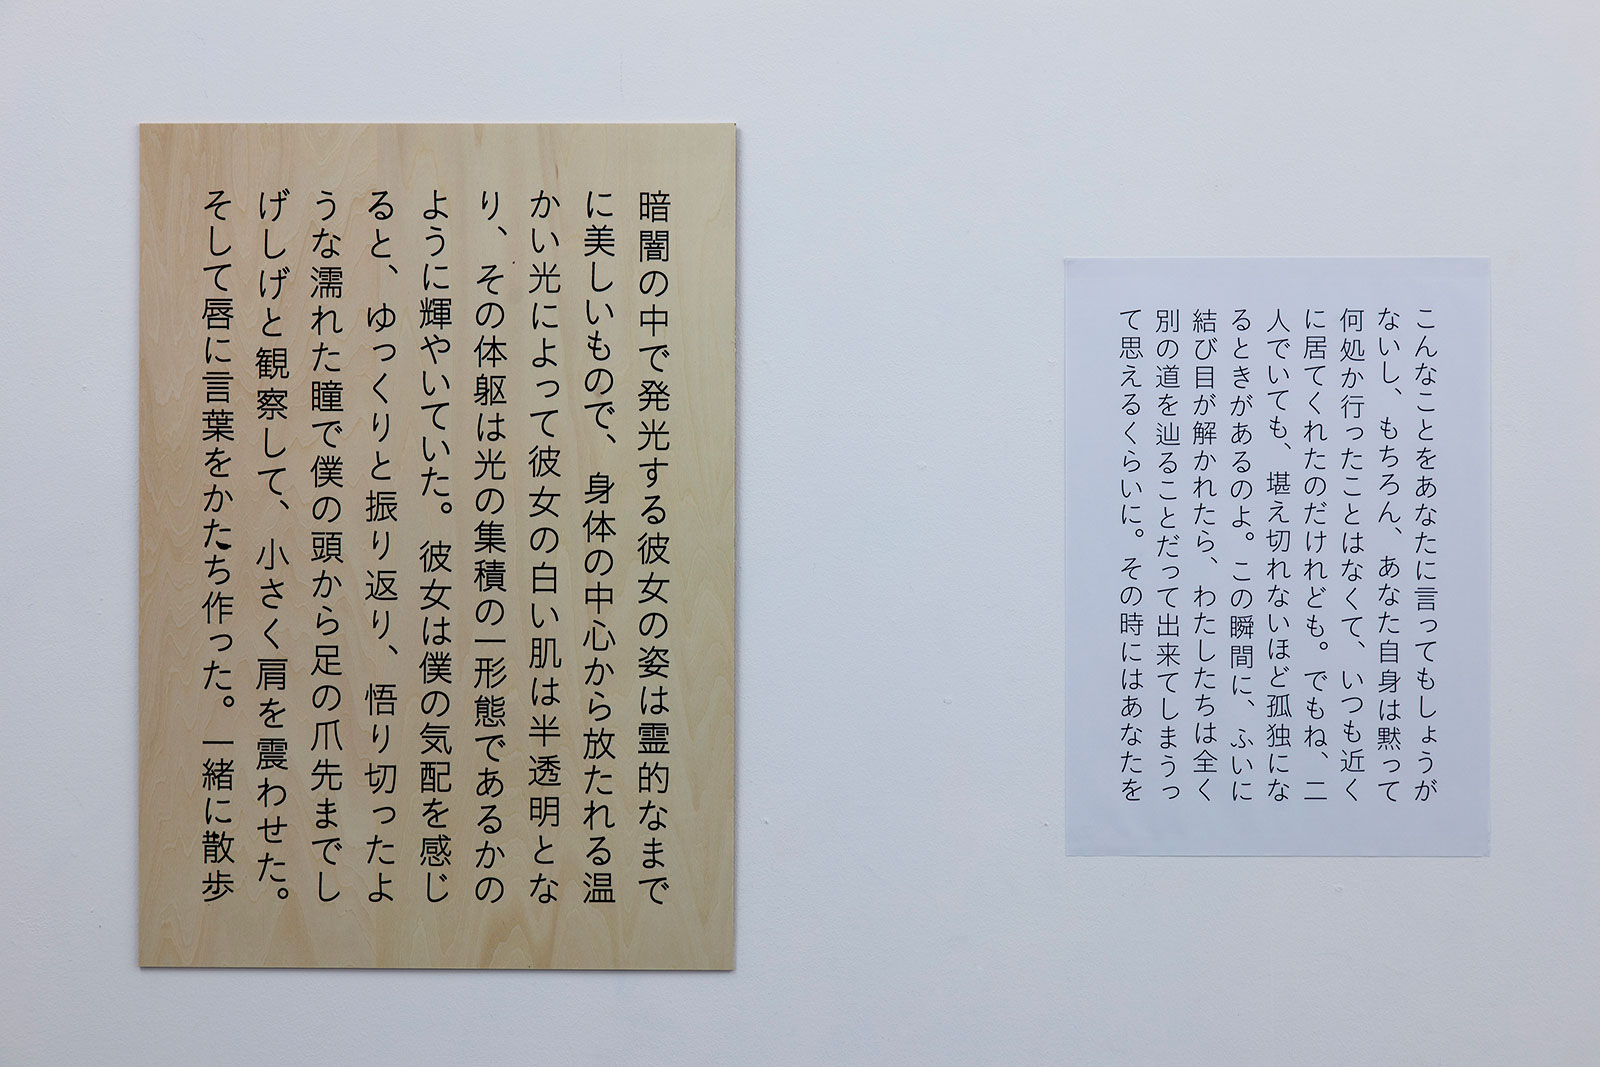 こんなことをあなたに言ってもしょうが
ないし、もちろん、あなた自身は黙って
何処か行ったことはなくて、いつも近く
に居てくれたのだけれども。でもね、二
人でいても、堪え切れないほど孤独にな
るときがあるのよ。この瞬間に、ふいに
結び目が解かれたら、わたしたちは全く
別の道を辿ることだって出来てしまうっ
て思えるくらいに。その時にはあなたを
暗闇の中で発光する彼女の姿は霊的なまで
に美しいもので、身体の中心から放たれる温
かい光によって彼女の白い肌は半透明とな
り、その体躯は光の集積の一形態であるかの
ように輝やいていた。彼女は僕の気配を感じ
ると、ゆっくりと振り返り、悟り切ったよ
うな濡れた瞳で僕の頭から足の爪先までし
げしげと観察して、小さく肩を震わせた。
そして唇に言葉をかたち作った。一緒に散歩